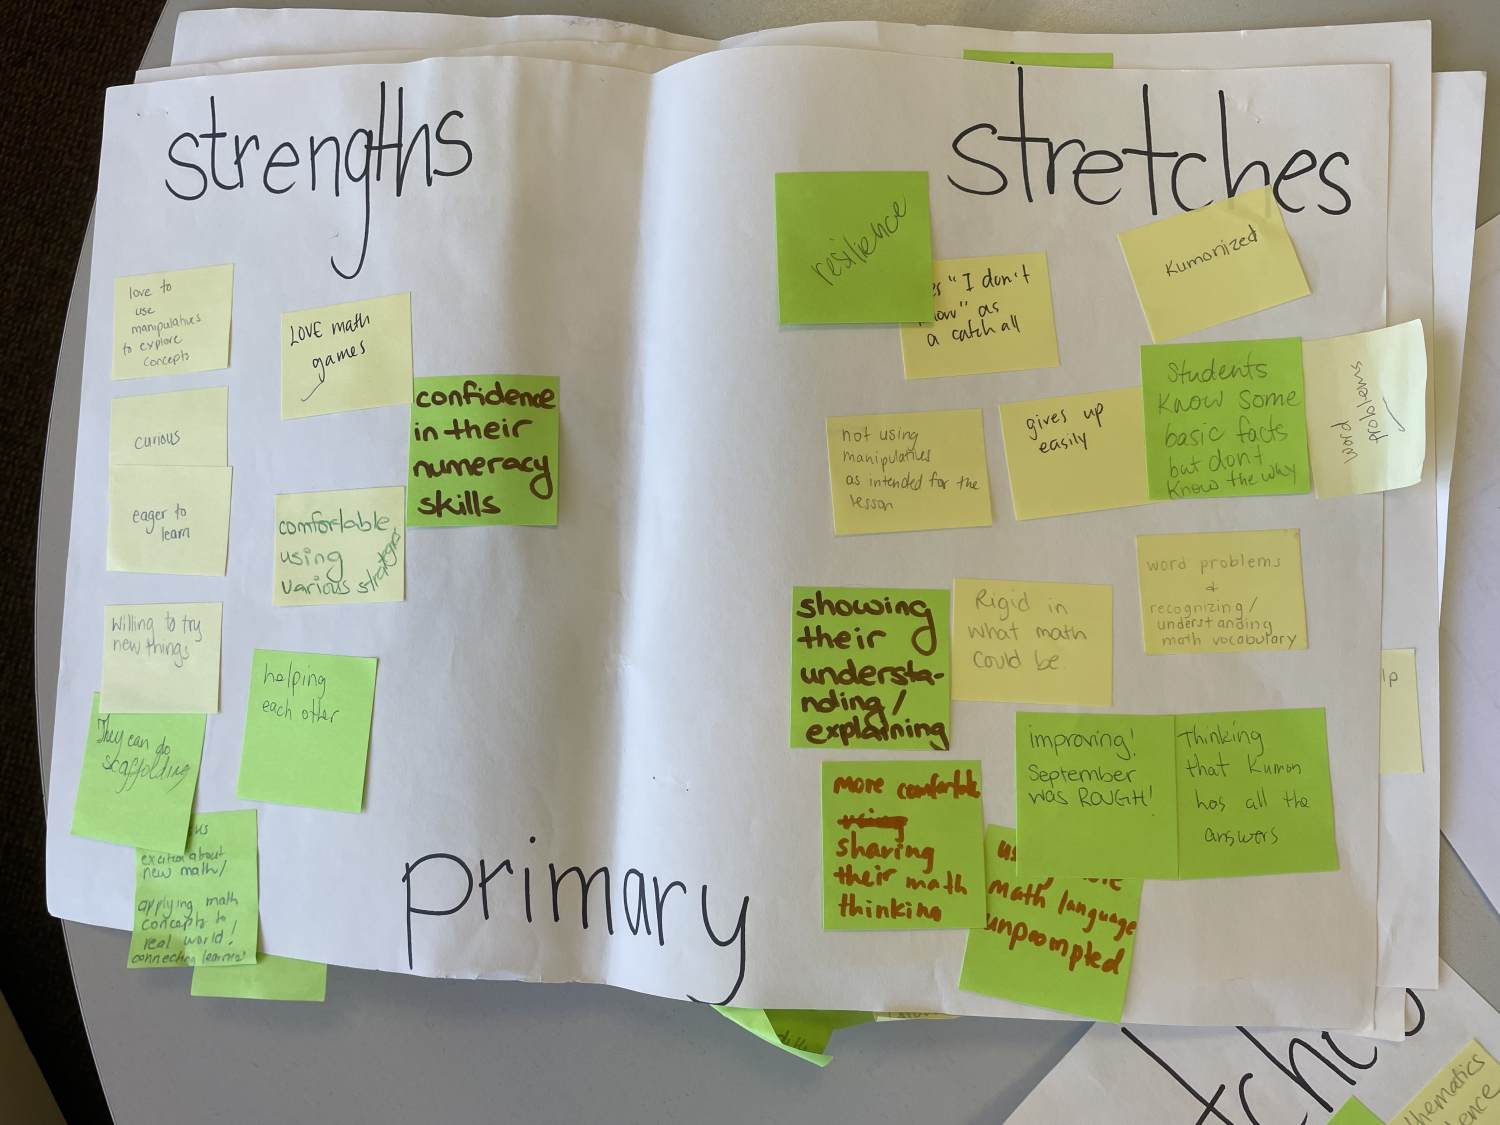 strengths
love to
use
manipulatives
to explore
concepts
LOVE math
games
curious
confidence
in their
numeracy
skills
eager to
learn
comfortable
using
various strategies
willing to try
new things
helping
each other
They can do
scaffolding
excited about
new math/
applying math
concepts to
real world!
connecting
primary
stretches
resilience
"I don't
as
a catch all
Kumonized
not using
manipulatives
as intended for the
lesson
gives up
easily
Students
Know some
basic facts
but dont
Know the why
word
problems
showing
their
understa-
nding/
explaining
Rigid in
what math
could be
word problems
+
recognizing/
understanding
math vocabulary
improving!
September
was ROUGH!
Thinking
that Kumon
has all the
answers
more comfortable
sharing
their math
thinking
math language
unprompted